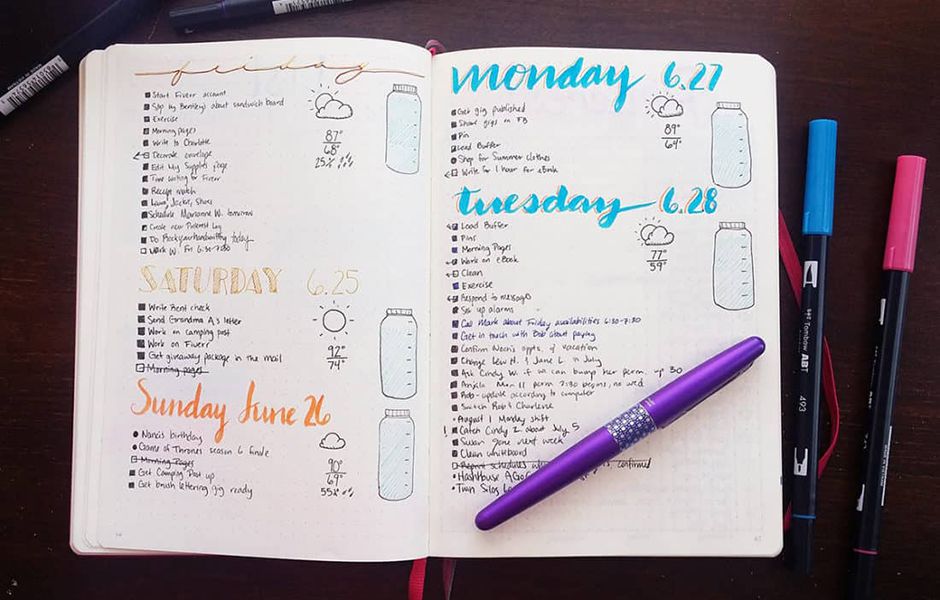 friday
Start Fiverr account
Stop by Bentley's about sandwich board
Exercise
Morning pages
Write to Charlotte
Decorate envelope
Edit My Supplies page
Time writing for Fiverr
Recipe match
Schedule Marianne W. tomorrow
Create new Pinterest
Do Rockyourhandwriting today
Work W. Fri 6:30-7:30
87°
68°
25%
SATURDAY 6.25
Write Rent check
Send Grandma A's letter
Work on camping post
Work on Fiverr
Get giveaway package in the mail
Morning pages
92°
74°
Sunday June 26
Nanci's birthday
Game of Thrones season 6 finale
Morning Pages
Get Camping Post up
Get brush lettering gig ready
90°
69°
55%
monday 6.27
Get gig published
Share gigs on FB
Pin
Load Buffer
Shop for Summer clothes
Write for 1 hour for eBook
89°
64°
tuesday 6.28
Load Buffer
Pins
Morning Pages
Work on eBook
Clean
Exercise
Respond to messages
Set up alarms
Call Mark about Friday availabilities 6:30-7:30
Get in touch with Bob about paying
Confirm appts. & vacation
Change Lew N. & Jane L. in July
Ask Cindy W. if we can bump her perm. up 30
Angela Mon 11 perm 2:30 begins, no wed
Rob - update according to computer
Switch Rob & Charlene
August 1 Monday shift
! Catch Cindy Z about July 5
Susan gone next week
Clean whiteboard
Report schedules confirmed
77°
59°
Tombow ABT
493